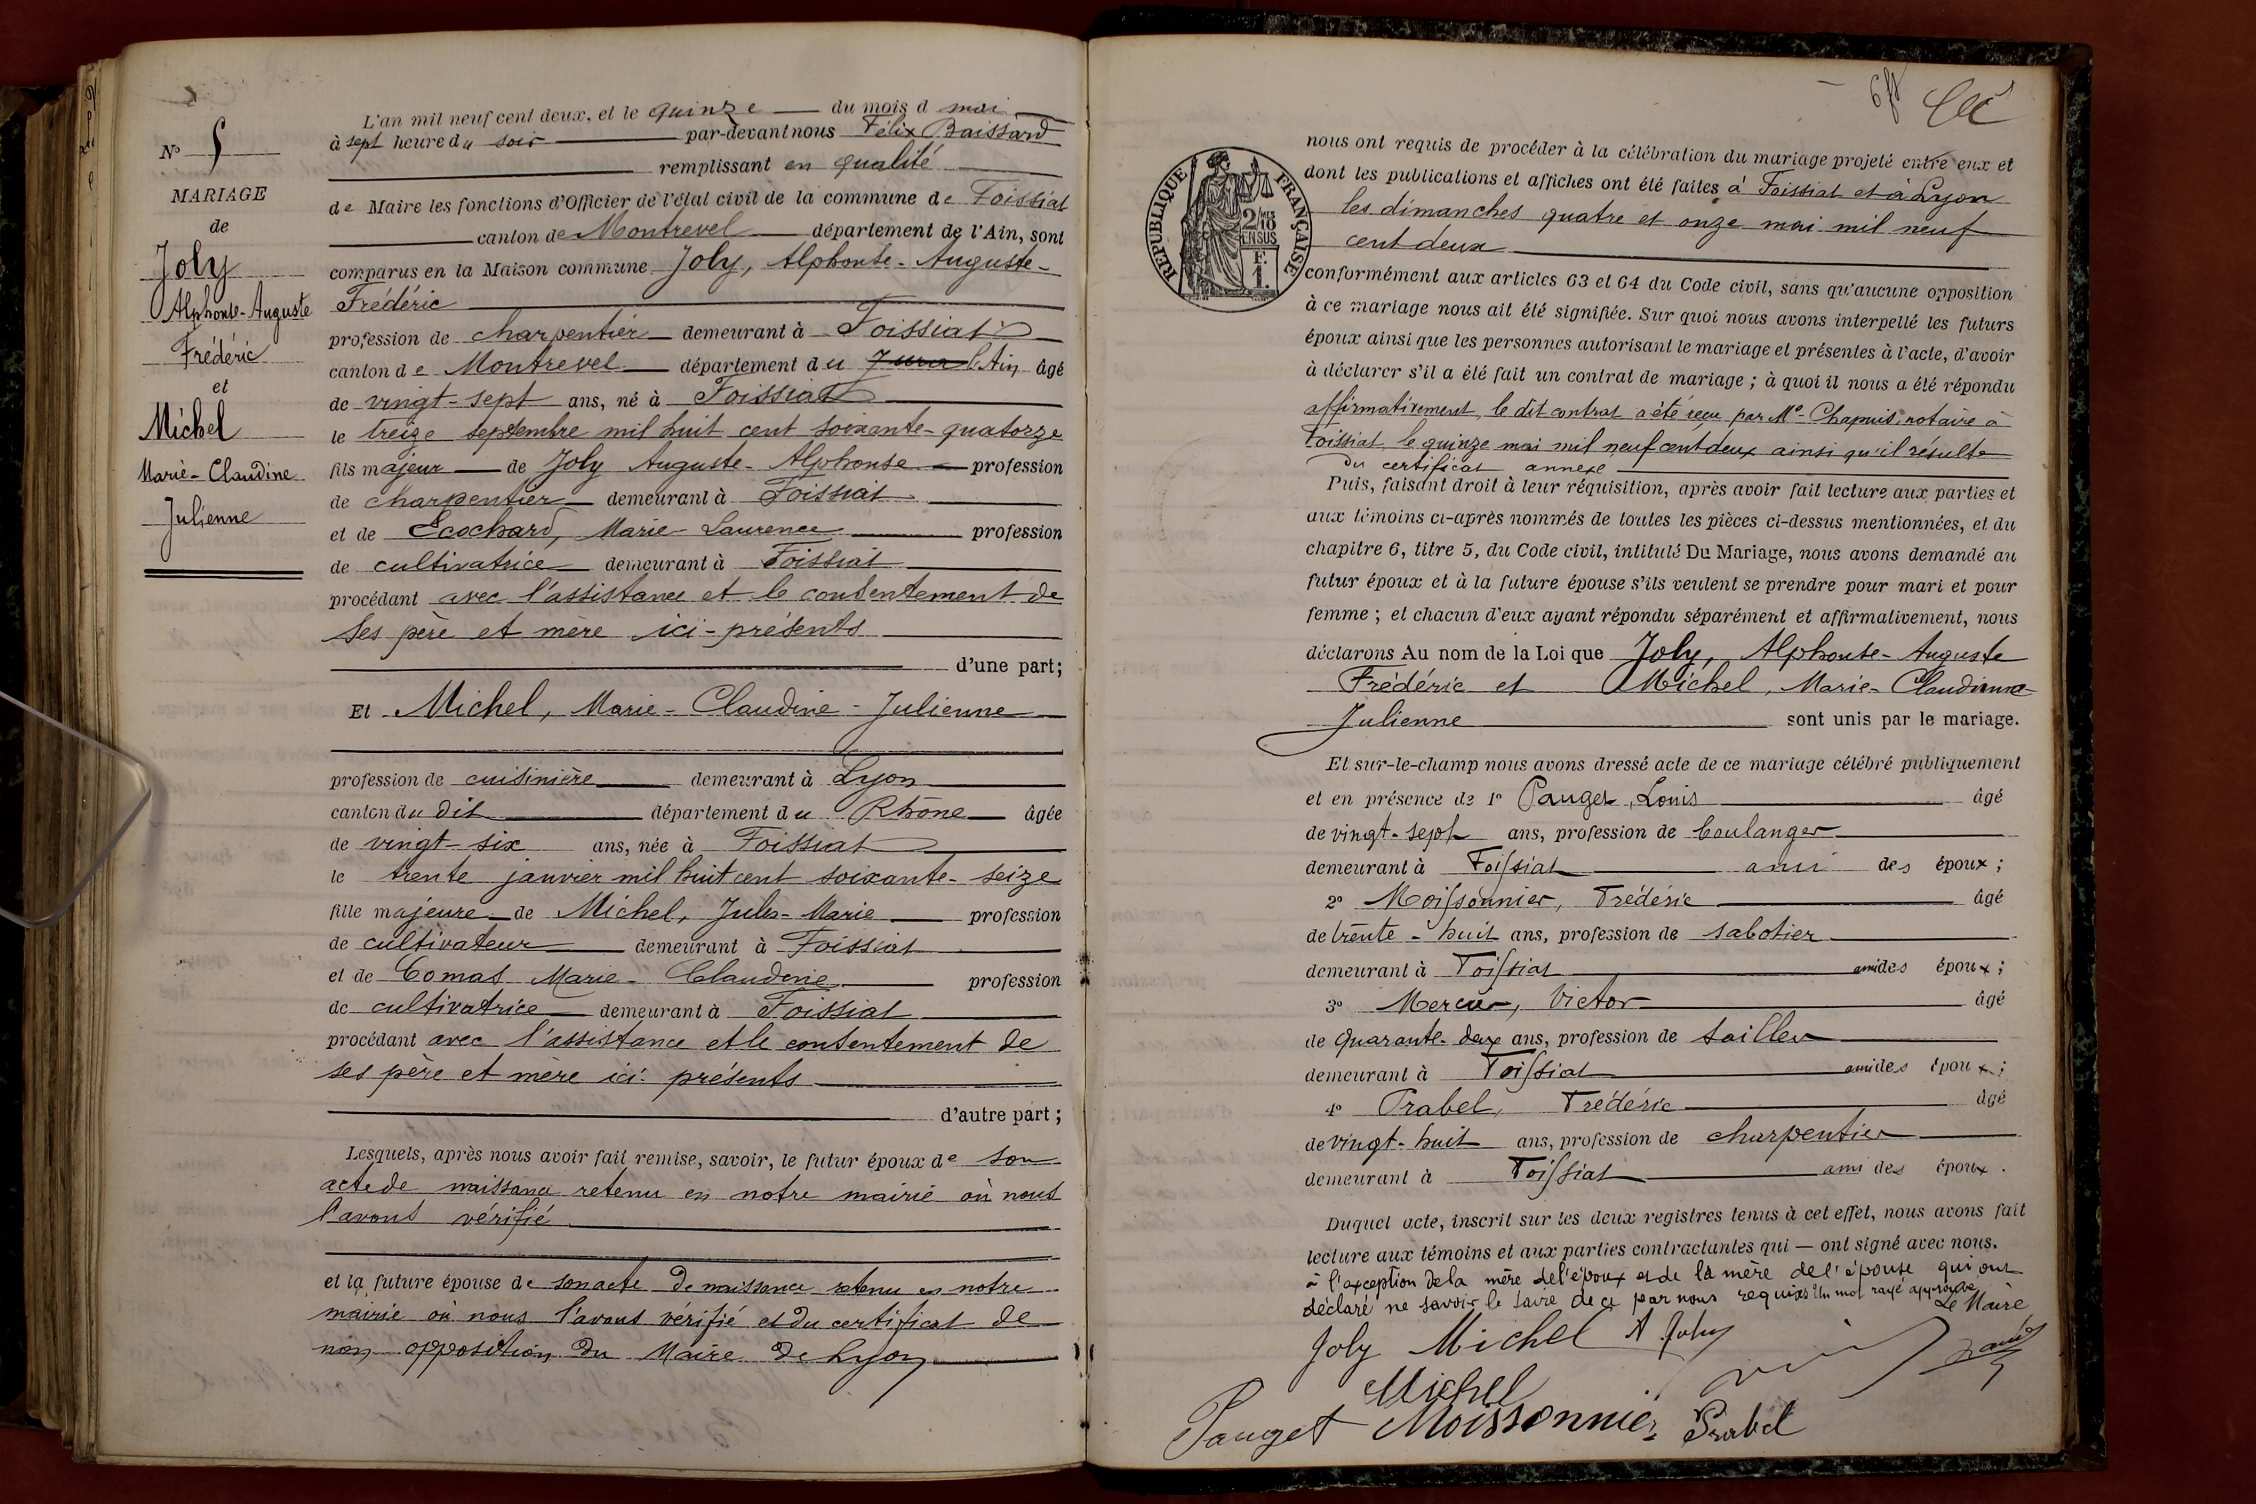 L'an mil neuf cent deux, et le quinze du mois d mai
à sept heure du soir par-devant nous Félix Baissard
remplissant en qualité
de Maire les fonctions d'Officier de l'état civil de la commune de Foissiat
canton de Montrevel département de l'Ain, sont
comparus en la Maison commune Joly, Alphonse-Auguste-
Frédéric
profession de charpentier demeurant à Foissiat
canton de Montrevel département du Jura l'Ain âgé
de vingt-sept ans, né à Foissiat
le treize septembre mil huit cent soixante-quatorze
fils majeur de Joly Auguste-Alphonse profession
de charpentier demeurant à Foissiat
et de Ecochard, Marie-Laurence profession
de cultivatrice demeurant à Foissiat
procédant avec l'assistance et le consentement de
ses père et mère ici-présents
d'une part;
Et Michel, Marie-Claudine-Julienne
profession de cuisinière demeurant à Lyon
canton du dit département du Rhône âgée
de vingt-six ans, née à Foissiat
le trente janvier mil huit cent soixante-seize
fille majeure de Michel, Jules-Marie profession
de cultivateur demeurant à Foissiat
et de Comas Marie-Claudine profession
de cultivatrice demeurant à Foissiat
procédant avec l'assistance et le consentement de
ses père et mère ici-présents
d'autre part;
Lesquels, après nous avoir fait remise, savoir, le futur époux de son
acte de naissance retenu en notre mairie où nous
l'avons vérifié
et la future épouse de son acte de naissance retenu en notre
mairie où nous l'avons vérifié et du certificat de
non opposition du Maire de Lyon
No 5
MARIAGE
de
Joly
Alphonse-Auguste
Frédéric
et
Michel
Marie-Claudine
Julienne
RÉPUBLIQUE FRANÇAISE
2/10
EN SUS
F.
1.
nous ont requis de procéder à la célébration du mariage projeté entre eux et
dont les publications et affiches ont été faites à Foissiat et à Lyon
les dimanches quatre et onze mai mil neuf
cent deux
conformément aux articles 63 et 64 du Code civil, sans qu'aucune opposition
à ce mariage nous ait été signifiée. Sur quoi nous avons interpellé les futurs
époux ainsi que les personnes autorisant le mariage et présentes à l'acte, d'avoir
à déclarer s'il a été fait un contrat de mariage; à quoi il nous a été répondu
affirmativement, le dit contrat a été reçu par Me Chapuis, notaire à
Foissiat le quinze mai mil neuf cent deux ainsi qu'il résulte
du certificat annexe
Puis, faisant droit à leur réquisition, après avoir fait lecture aux parties et
aux témoins ci-après nommés de toutes les pièces ci-dessus mentionnées, et du
chapitre 6, titre 5, du Code civil, intitulé Du Mariage, nous avons demandé au
futur époux et à la future épouse s'ils veulent se prendre pour mari et pour
femme; et chacun d'eux ayant répondu séparément et affirmativement, nous
déclarons Au nom de la Loi que Joly, Alphonse-Auguste
Frédéric et Michel, Marie-Claudine-
Julienne sont unis par le mariage.
Et sur-le-champ nous avons dressé acte de ce mariage célébré publiquement
et en présence de 1o Pauget, Louis âgé
de vingt-sept ans, profession de boulanger
demeurant à Foissiat ami des époux;
2o Moissonnier, Frédéric âgé
de trente-huit ans, profession de sabotier
demeurant à Foissiat ami des époux;
3o Mercier, Victor âgé
de quarante-deux ans, profession de tailleur
demeurant à Foissiat ami des époux;
4o Prabel, Frédéric âgé
de vingt-huit ans, profession de charpentier
demeurant à Foissiat ami des époux.
Duquel acte, inscrit sur les deux registres tenus à cet effet, nous avons fait
lecture aux témoins et aux parties contractantes qui — ont signé avec nous.
à l'exception de la mère de l'époux et de la mère de l'épouse qui ont
déclaré ne savoir le faire de ce par nous requises Un mot rayé approuvé
Le Maire
Joly Michel A Joly
Michel
Pauget Moissonnier Prabel